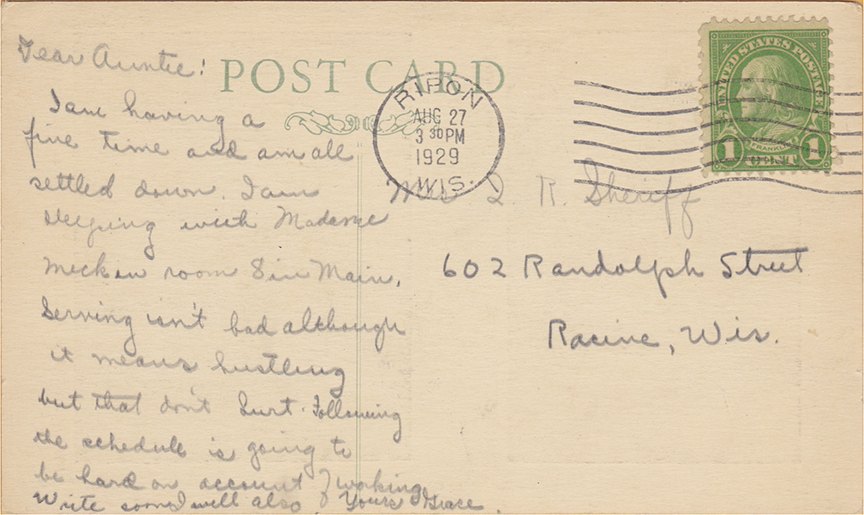 Dear Auntie:
POST CARD
I am having a
fine time and am all
settled down. I am
sleeping with Madame
Meck in room 8 in Main.
Serving isn't bad although
it means hustling
but that don't hurt. Following
the schedule is going to
be hard on account of working.
Write soon I will also Yours Grace.
RIPON
AUG 27
3 30 PM
1929
WIS.
UNITED STATES POSTAGE
FRANKLIN
1 CENT 1
Mrs R. Sheriff
602 Randolph Street
Racine, Wis.